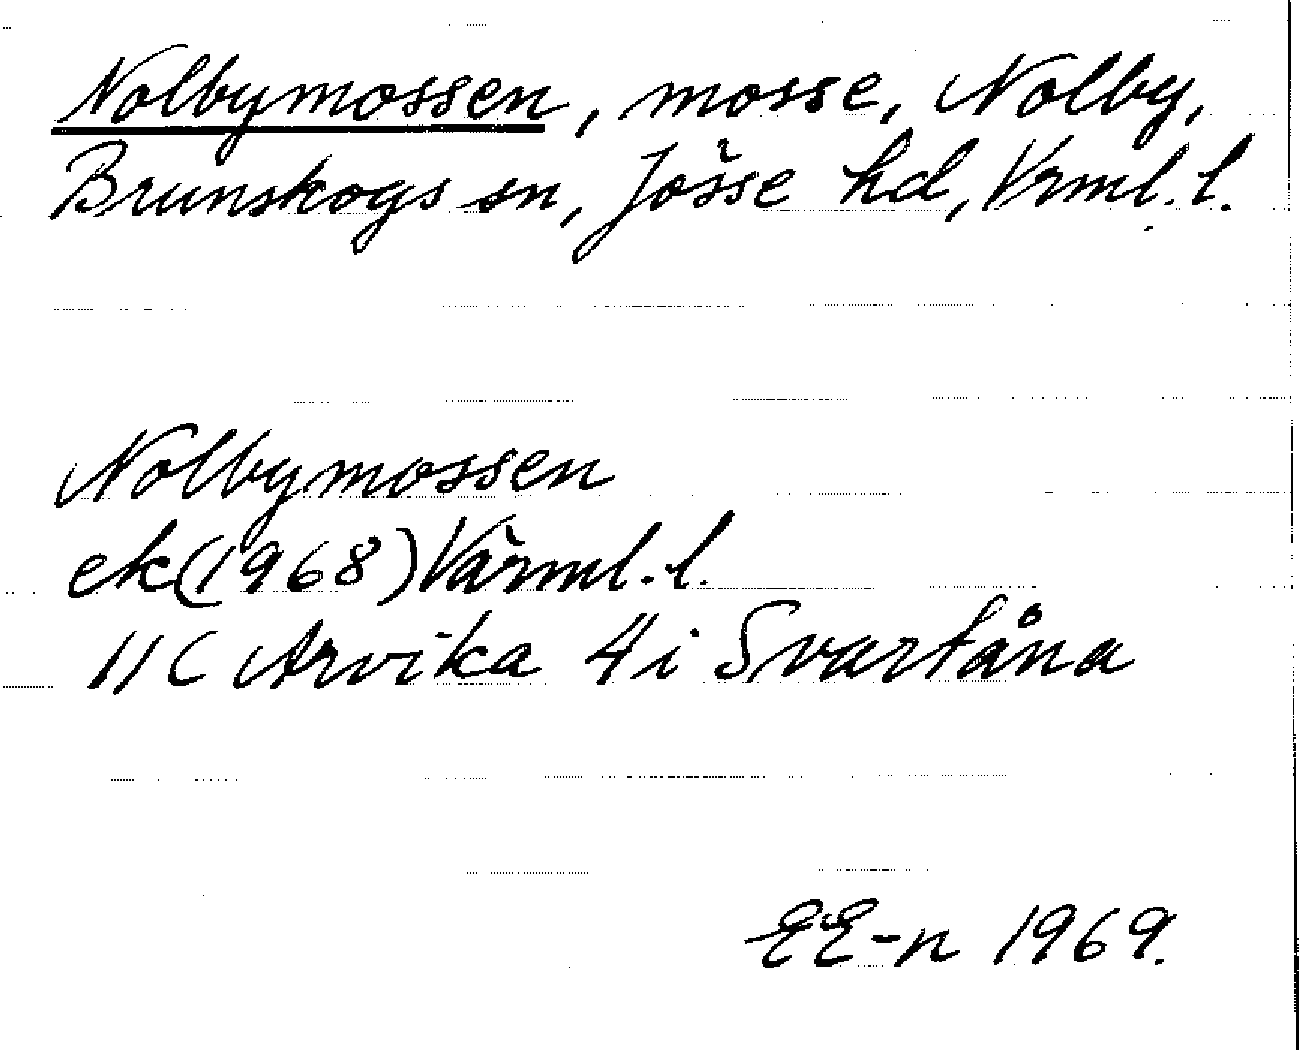 Nolbymossen, mosse, Nolby,
Brunskogs sn, Jösse hd, Vrml. l.
Nolbymossen
ek (1968) Värml. l.
11 C Arvika 4 i Svartåna
EE-n 1969.